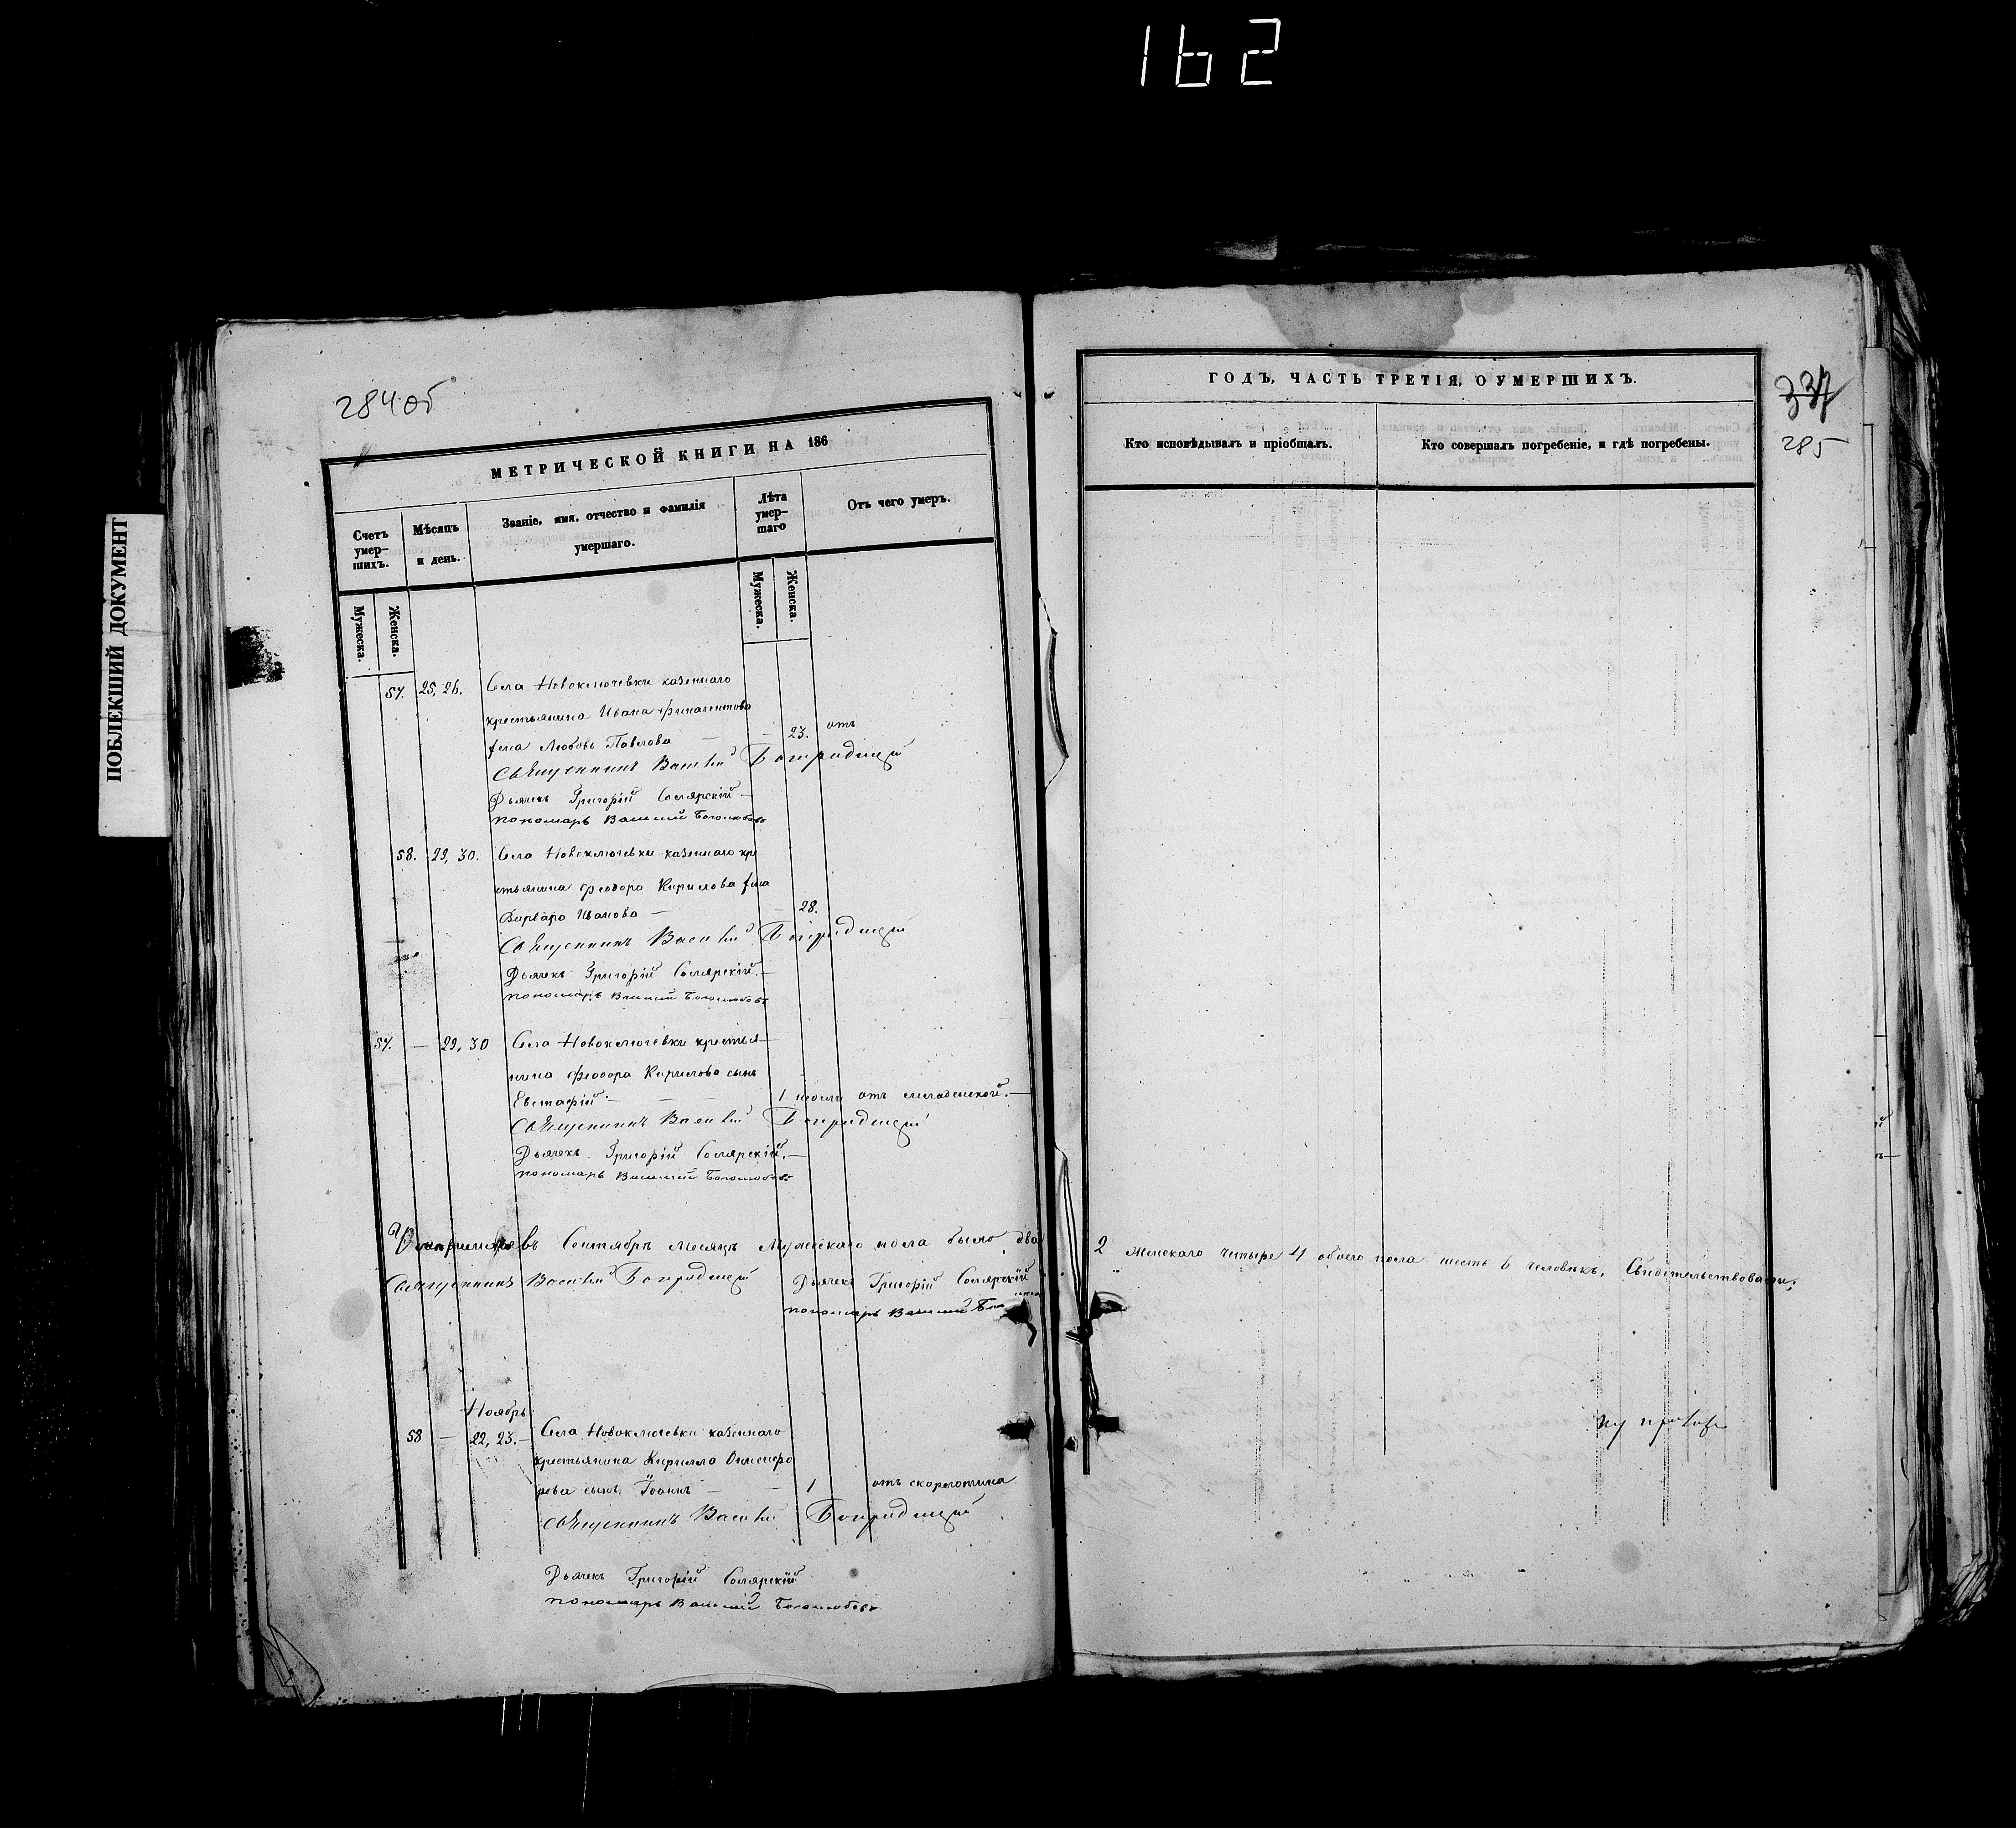 162
ПОБЛЕКШИЙ ДОКУМЕНТ
284об
МЕТРИЧЕСКОЙ КНИГИ НА 186
Счетъ умер-
шихъ.
Мѣсяцъ
и день.
Званіе, имя, отчество и фамилія
умершаго.
Лѣта
умер-
шаго
Отъ чего умеръ.
Мужеска.
Женска.
Мужеска.
Женска.
57. 25, 26. Села Новоключевки казеннаго
крестьянина Ивана
жена Любовь Павлова — 23. отъ
Священникъ Василій
Дьячекъ Григорій Солярскій
пономарь Василій Боголюбовъ
58. 29, 30. Села Новоключевки казеннаго кре
стьянина Феодора Кирилова жена
Варвара Иванова — 28.
Священникъ Василій
Дьячекъ Григорій Солярскій.
пономарь Василій Боголюбовъ
57. — 29, 30 Села Новоключевки крестья-
нина Феодора Кирилова сынъ
Евстафій — 1 недели отъ младенской.
Священникъ Василій
Дьячекъ Григорій Солярскій.
пономарь Василій Боголюбовъ
въ Сентябрѣ месяцѣ Мужескаго пола было два
Священникъ Василій
Дьячекъ Григорій Солярскій
пономарь Василій
Ноябрь
58 — 22, 23. — Села Новоключевки казеннаго
крестьянина Кирилла
рова сынъ Іоаннъ — 1 отъ скорлотина
Священникъ Василій
Дьячекъ Григорій Солярскій
пономарь Василій Боголюбовъ
ГОДЪ, ЧАСТЬ ТРЕТІЯ, О УМЕРШИХЪ.
337
285
Кто исповѣдывалъ и пріобщалъ.
Кто совершалъ погребеніе, и гдѣ погребены.
2 Женскаго четыре 4 обоего пола шесть 6 человѣкъ. Свидетельствовали,